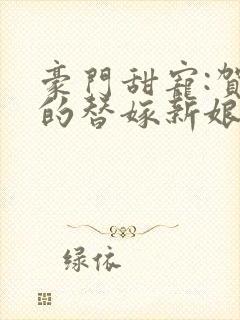 豪門甜寵:賀
的替嫁新娘
绿依